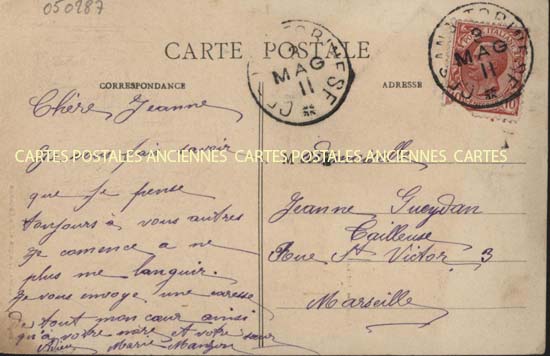 050287
CARTE POSTALE
CORRESPONDANCE
ADRESSE
8
MAG
11
8
MAG
11
POSTE ITALIANE
10
CARTES POSTALES ANCIENNES CARTES POSTALES ANCIENNES CARTES
Chère Jeanne
Je vous fai savoir
que je pense
toujours à vous autres
je comence a ne
plus me languir.
je vous envoye une caresse
de tout mon cœur ainsi
qu'a votre mère et votre sœur
Adieu Marie Manzon
Mademoiselle
Jeanne Gueydan
Tailleuse
Rue St Victor 3
Marseille